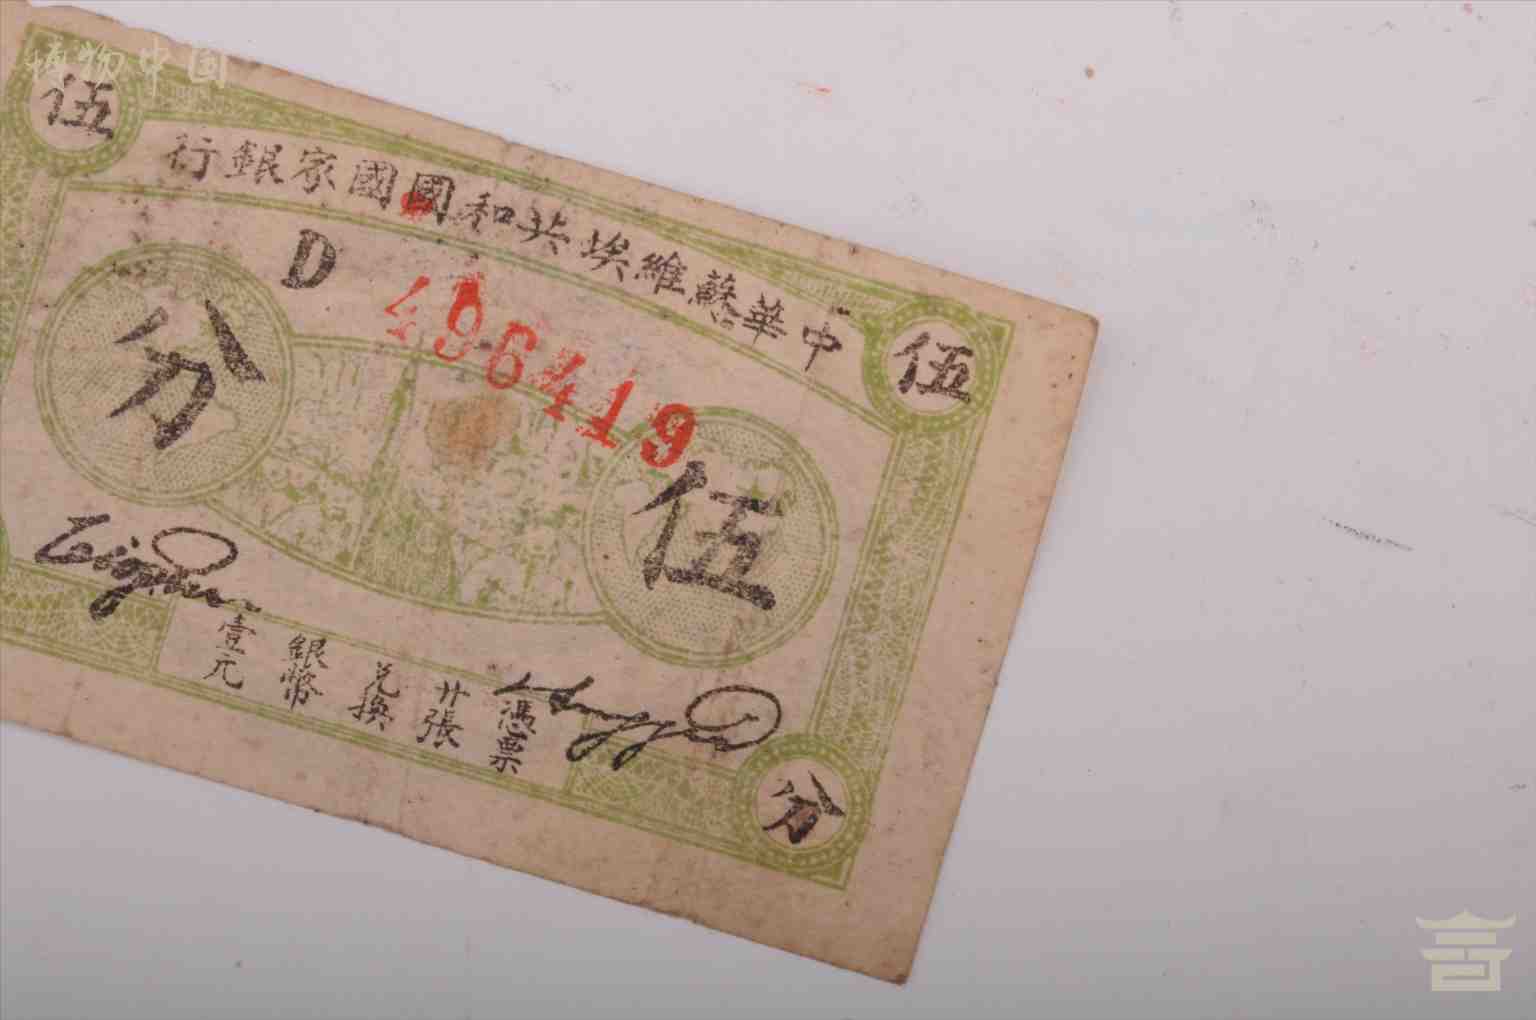 博物中国
伍
中華蘇維埃共和國國家銀行
伍
D
496419
分
伍
憑票
廿張
兌換
銀幣
壹元
分